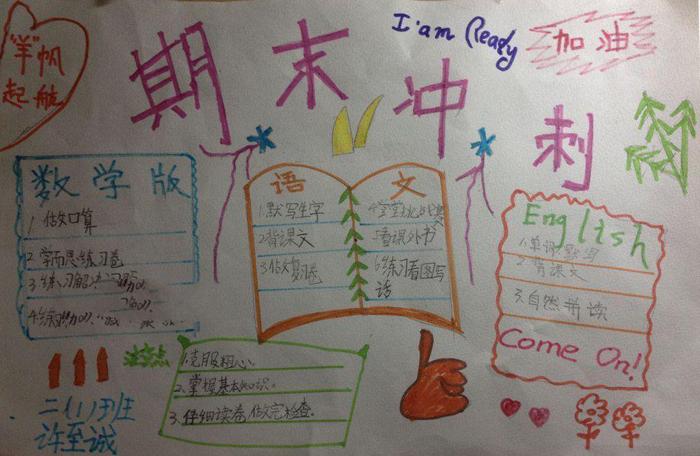 "羊"帆
起航
I am Ready
加油
期末冲刺
数学版
1 做口算
2 学而思练习卷
3 练习解决问题
4 练
语文
1 默写生字
2 背课文
3 做复习卷
5 看课外书
6 练习看图写
话
English
1. 单词默写
2 背课文
3. 自然拼读
Come On!
注意点
1. 克服粗心.
2. 掌握基本知识.
3. 仔细读卷，做完检查.
二(1)班
许至诚